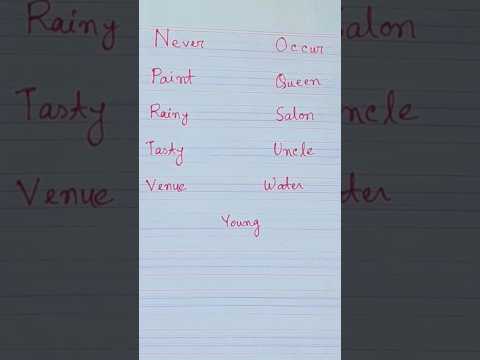 Never Occur
Paint Queen
Rainy Salon
Tasty Uncle
Venue Water
Young
Rainy
Tasty
Venue
Salon
ncle
ater